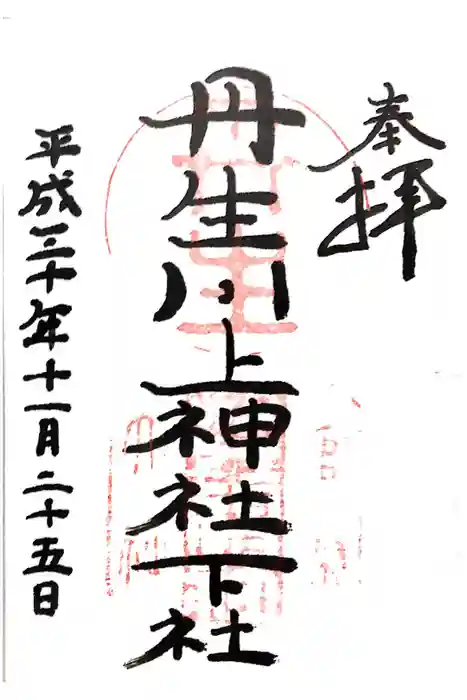 奉拝
丹生川上神社下社
平成三十年十一月二十五日